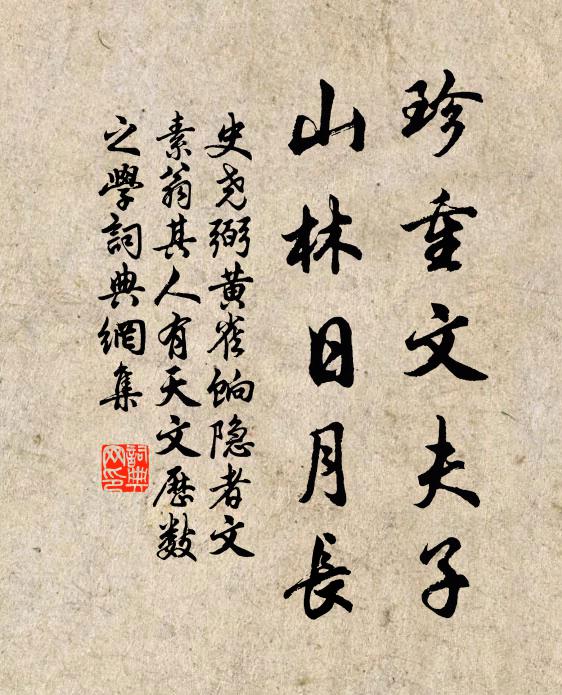 珍重文夫子
山林日月長
史尧弼黄雀餉隐者文
素翁其人有天文歷数
之學詞典網集
詞典网印